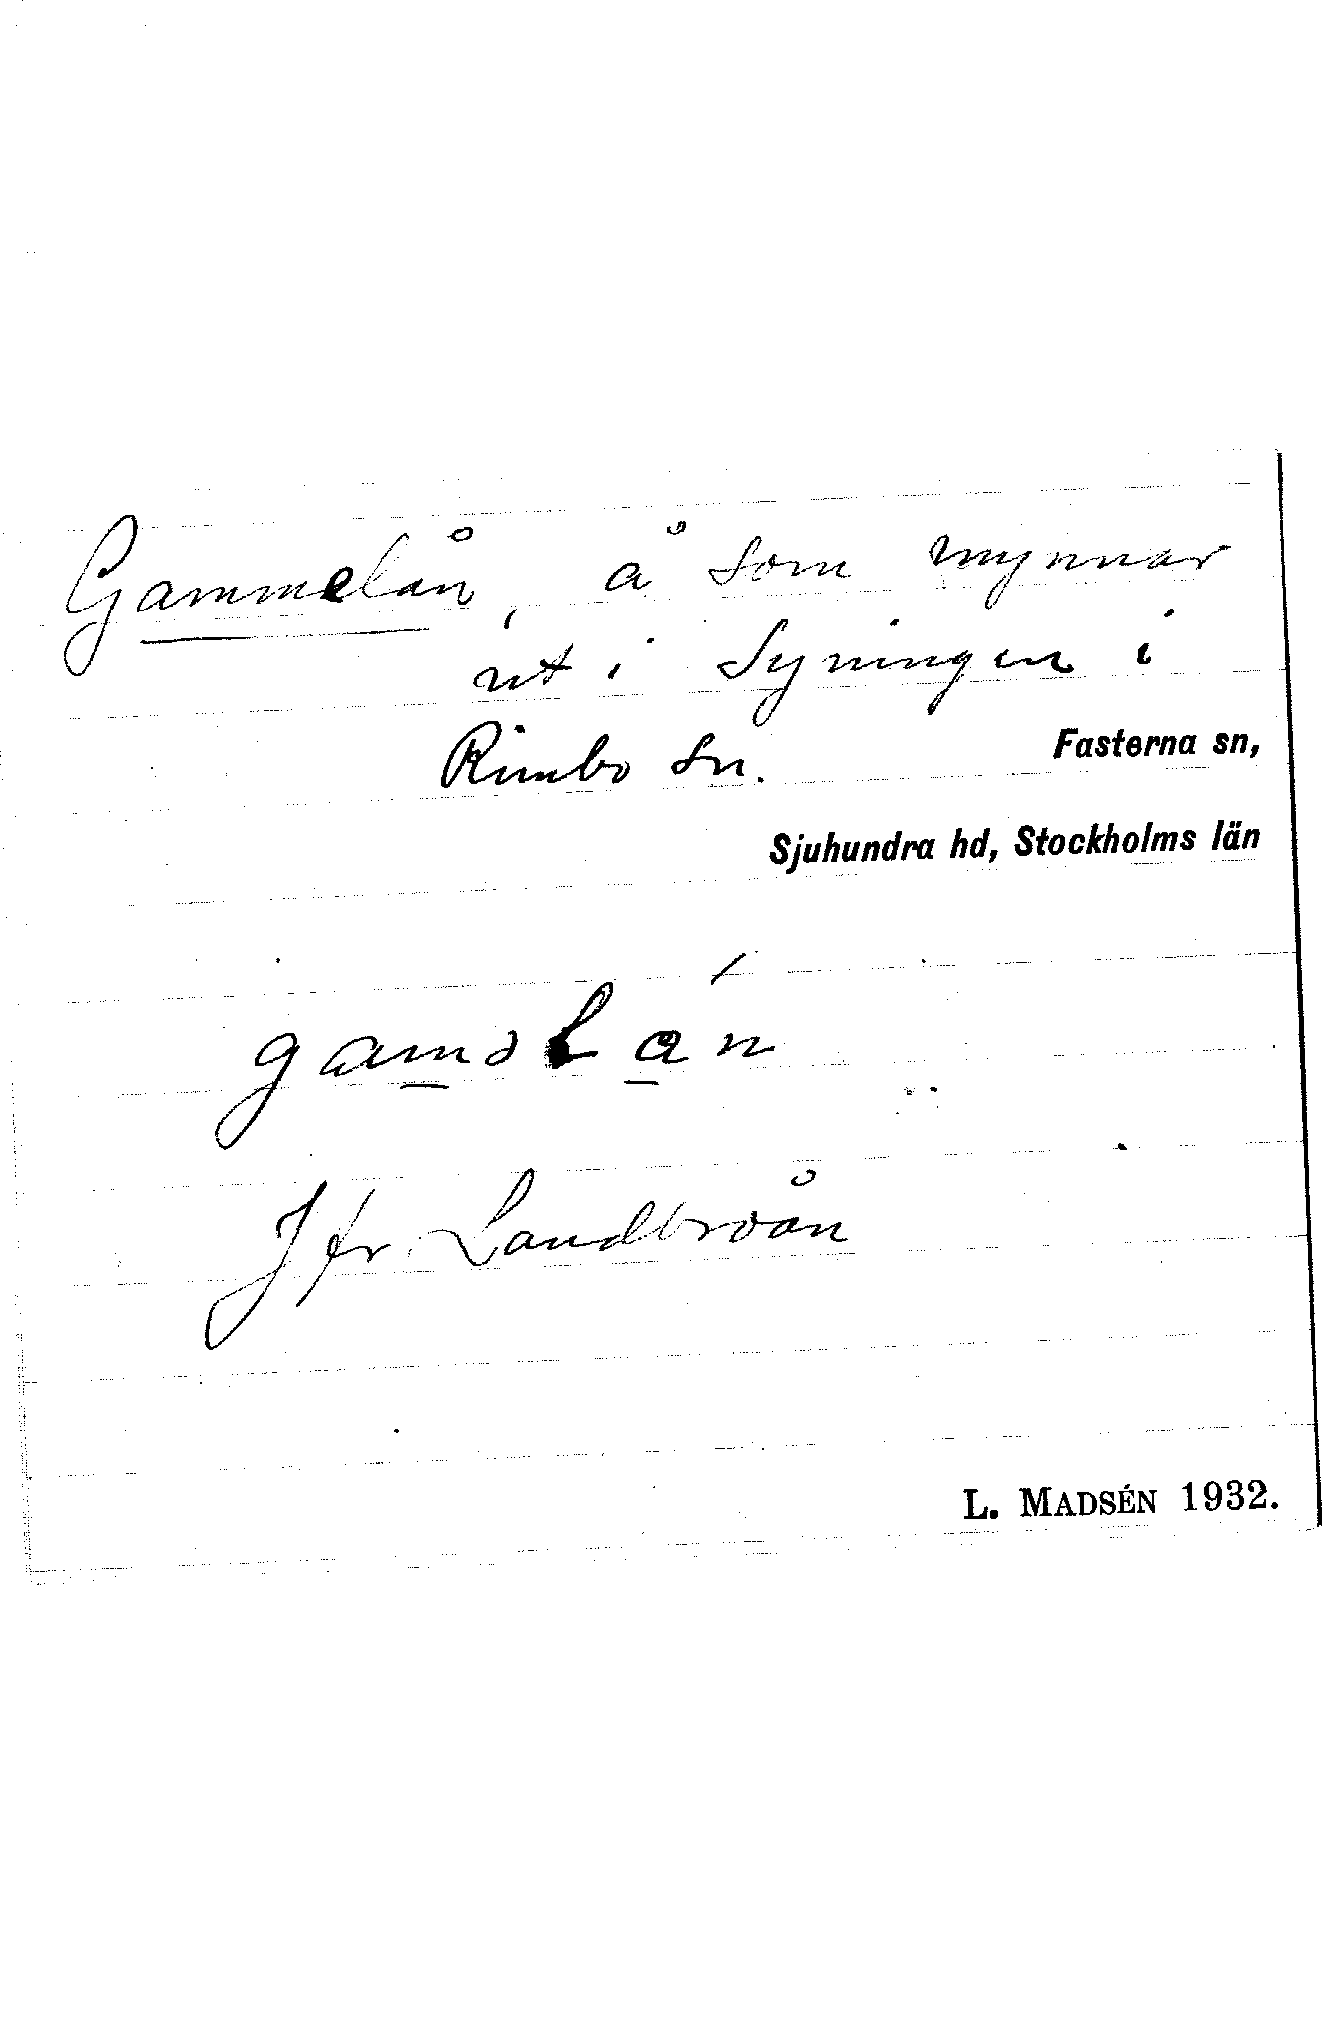 Gammelån, å som mynnar
ut i Syningen i
Rimbo sn.
Fasterna sn,
Sjuhundra hd, Stockholms län
Jfr. Landbroån
L. MADSÉN 1932.